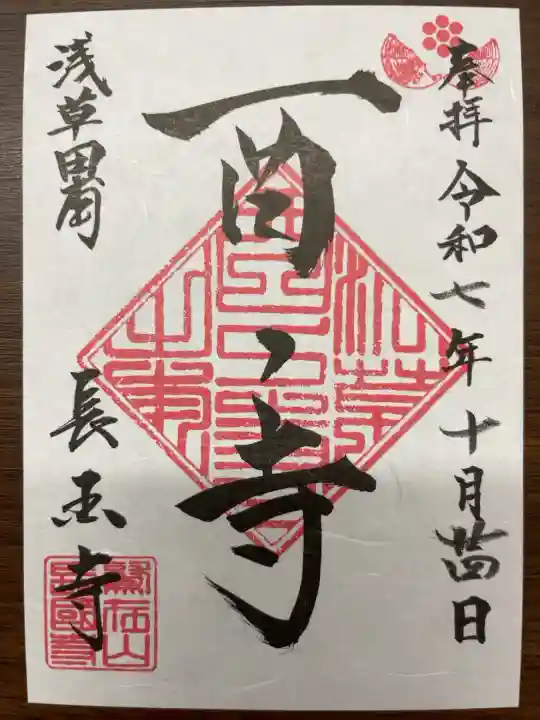 奉拝 令和七年十月廿四日
酉之寺
浅草田圃
長国寺
鷲在山
長國寺